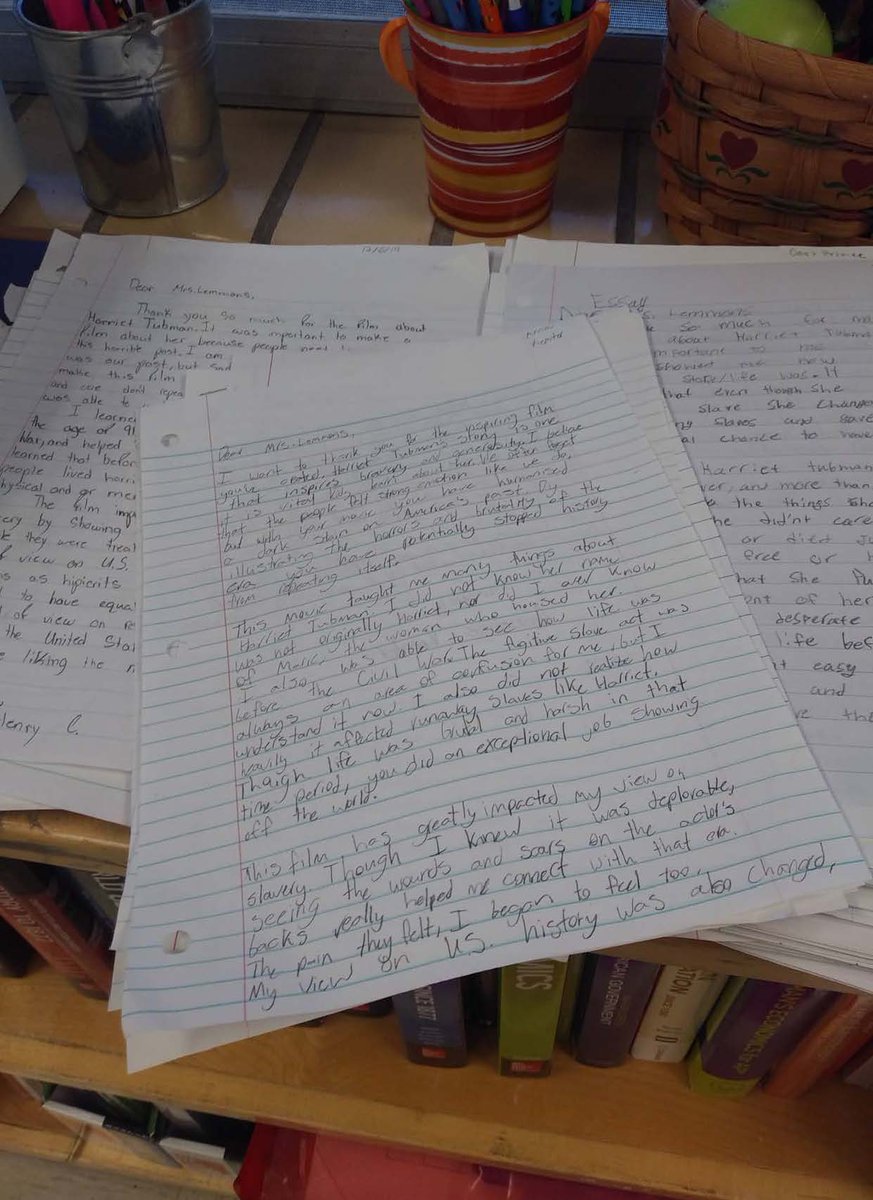 12/6/19
Dear Mrs. Lemmons,
Thank you so much for the film about
Harriet Tubman. It was important to make a
film about her because people need
this horrible past. I am
was our past, but sad
make this film
and we don't repea
was able to
I learne
the age of 91
War, and helped
learned that befor
people lived horri
physical and or me
The film imp
ery by showing
they were treat
f view on U.S.
s as hipicrits
to have equal
of view on
the United Stat
e liking the
Henry C.
Dear Mrs. Lemmons,
I want to thank you for the inspiring film
you've created. Harriet Tubman's story is one
that inspires bravery and generosity. I believe
it is vital kids learn about her. We often forget
that the people felt strong emotion like we do,
but with your movie you have humanised
a dark stain on America's past. By
illustrating the horrors and brutality of the
era you have potentially stopped history
from repeating itself.
This movie taught me many things about
Harriet Tubman. I did not know her name
was not originally Harriet, nor did I ever know
of Marie, the woman who housed her.
I also was able to see how life was
before the Civil War. The fugitive slave act was
always an area of confusion for me, but I
understand it now I also did not realize how
heavily it affected runaway slaves like Harriet.
Thaigh life was brutal and harsh in that
time period, you did an exceptional job showing
off the world.
This film has greatly impacted my view on
slavery. Though I knew it was deplorable,
seeing the wounds and scars on the actor's
backs really helped me connect with that era.
The pain they felt, I began to feel too.
My view on U.S. history was also changed,
Essay
Lemmons
so much for ma
about Harriet Tubma
mportant to me
showed me how
story/life was. It
that even though she
slave she change
ng slaves and gave
al chance to have
Harriet tubman
er, and more than
the things she
he didn't care
or died ju
free or h
hat she pu
ent of her
desperate
life bef
t easy
and
e the
GOVERNMENT